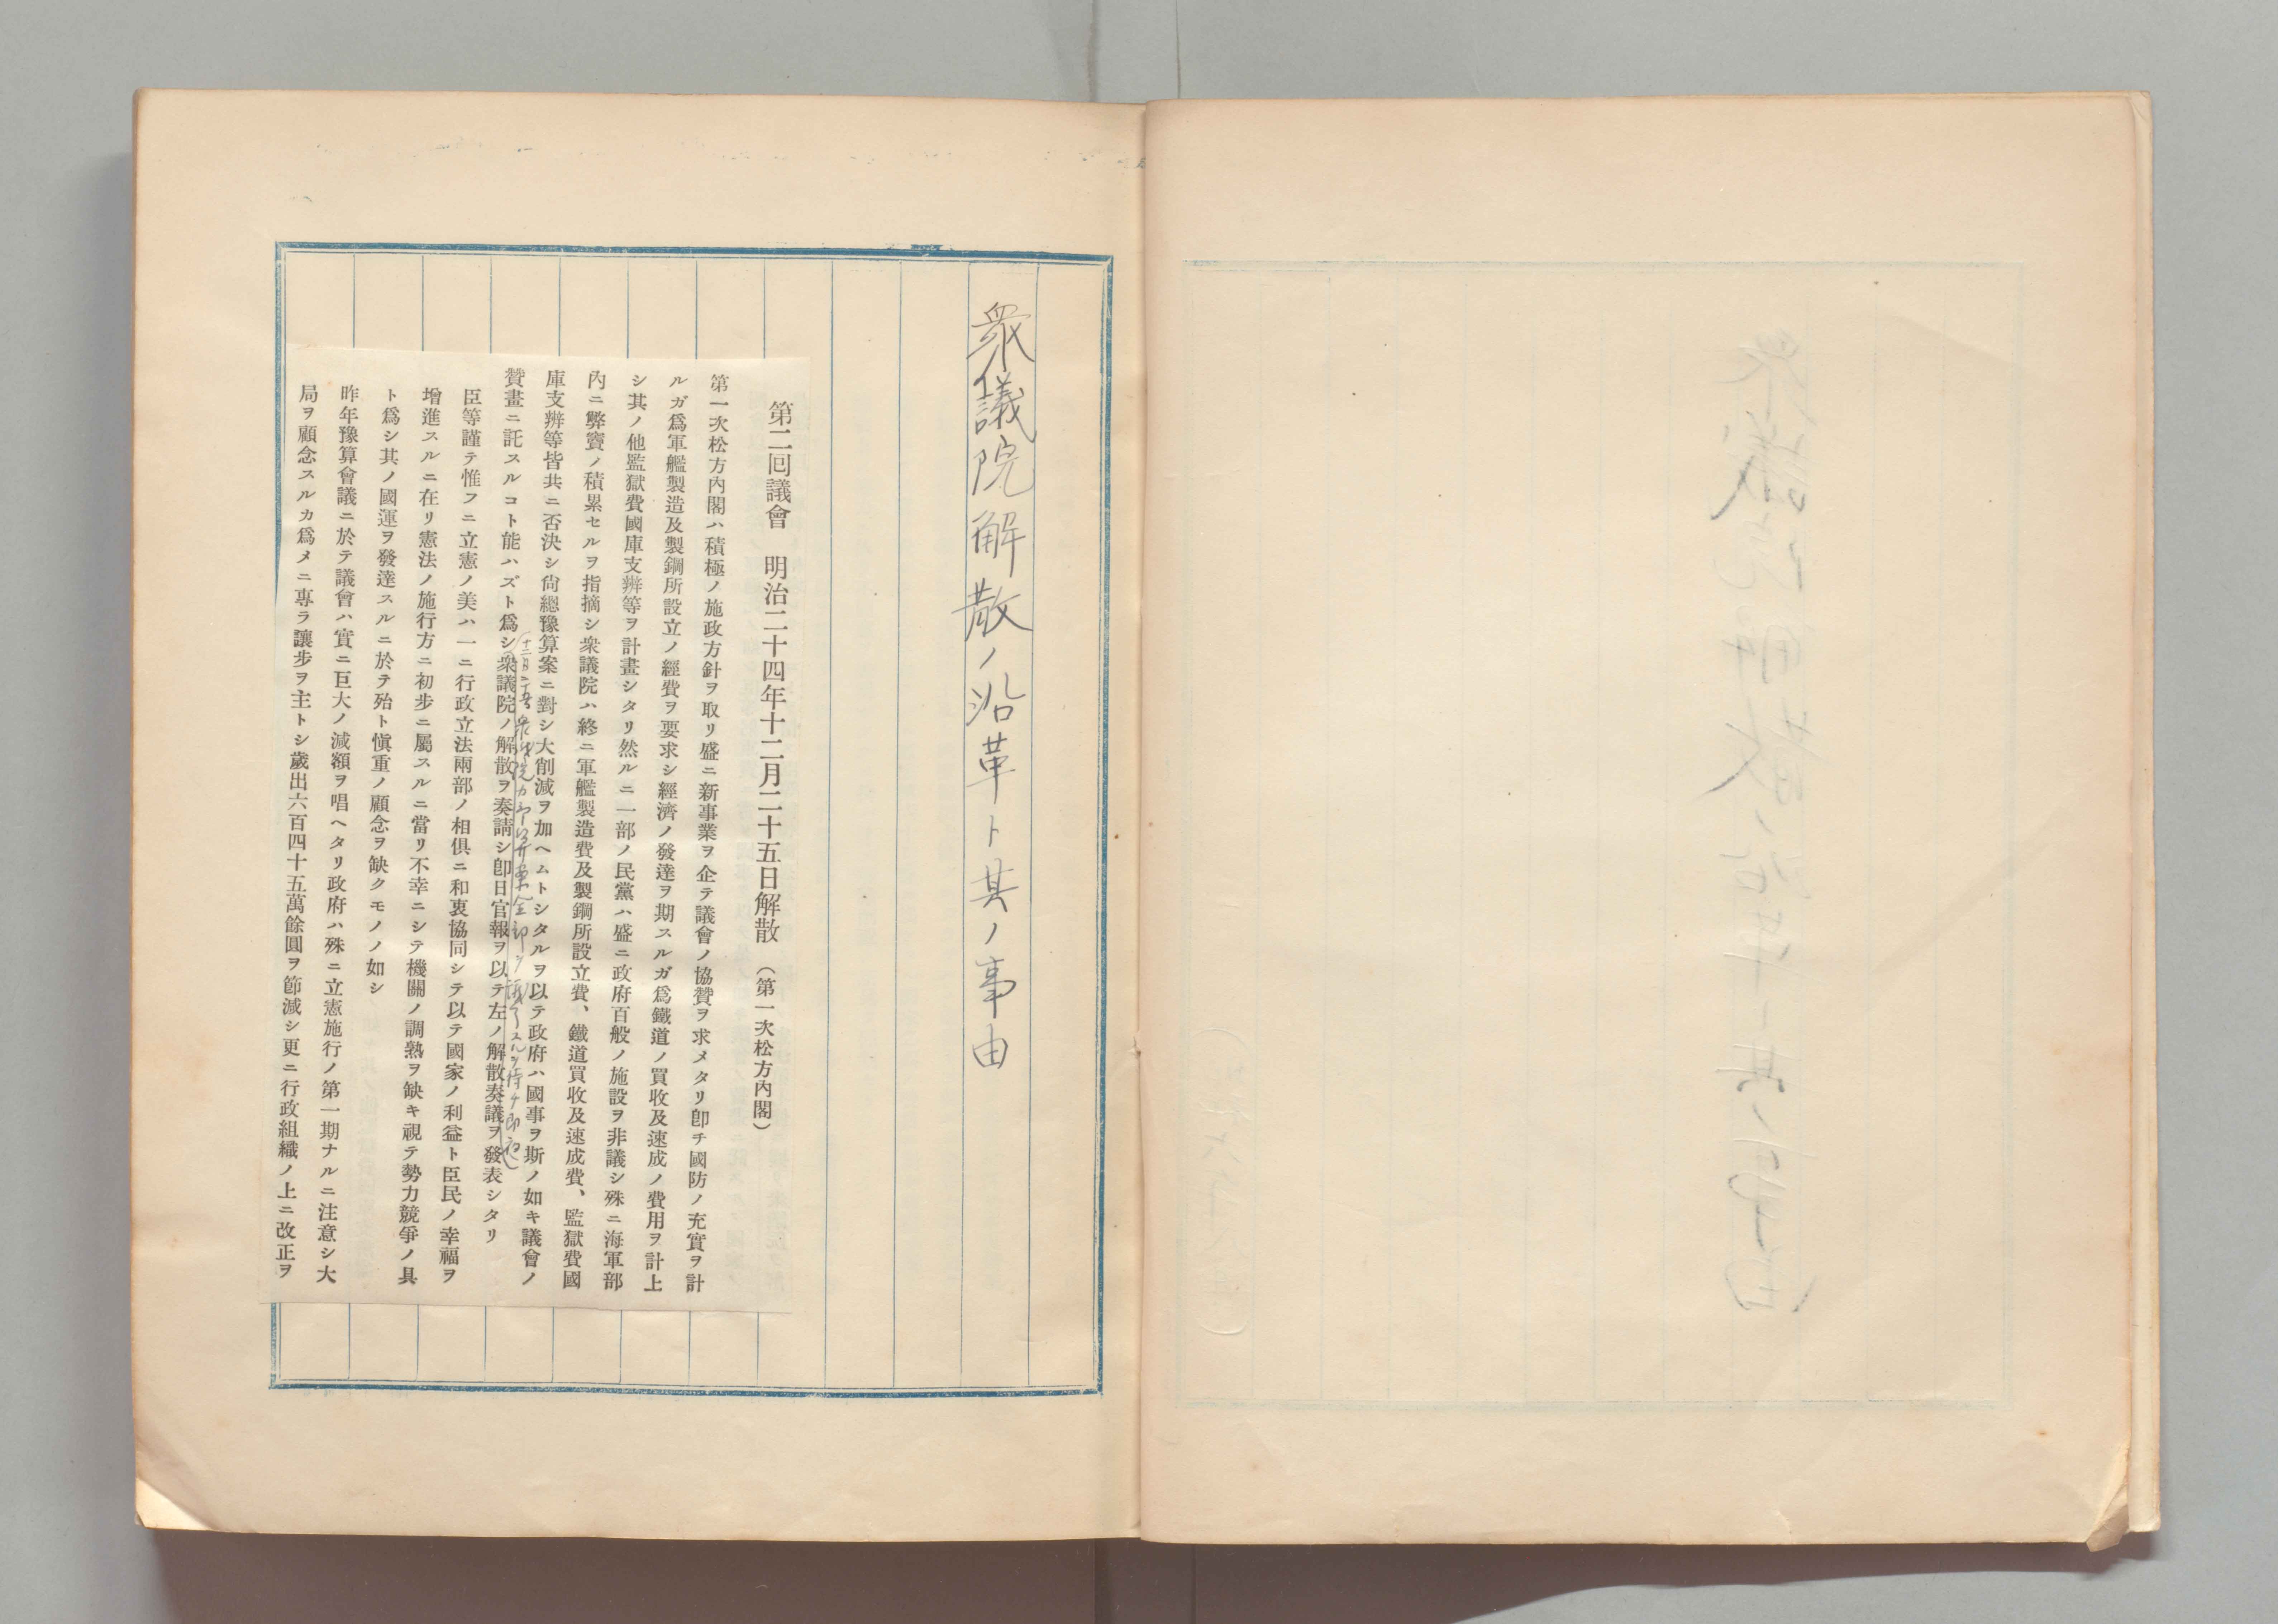 衆議院解散ノ沿革ト其ノ事由
第二回議會　明治二十四年十二月二十五日解散（第一次松方內閣）
第一次松方內閣ハ積極ノ施政方針ヲ取リ盛ニ新事業ヲ企テ議會ノ協贊ヲ求メタリ卽チ國防ノ充實ヲ計
ルガ爲軍艦製造及製鋼所設立ノ經費ヲ要求シ經濟ノ發達ヲ期スルガ爲鐵道ノ買收及速成ノ費用ヲ計上
シ其ノ他監獄費國庫支辨等ヲ計畫シタリ然ルニ一部ノ民黨ハ盛ニ政府百般ノ施設ヲ非議シ殊ニ海軍部
內ニ弊竇ノ積累セルヲ指摘シ衆議院ハ終ニ軍艦製造費及製鋼所設立費、鐵道買收及速成費、監獄費國
庫支辨等皆共ニ否決シ尙總豫算案ニ對シ大削減ヲ加ヘムトシタルヲ以テ政府ハ國事ヲ斯ノ如キ議會ノ
十二月二十五日衆議院カ予算案全部ヲ議了スルヲ待チ即夜
贊畫ニ託スルコト能ハズト爲シ衆議院ノ解散ヲ奏請シ卽日官報ヲ以テ左ノ解散奏議ヲ發表シタリ
臣等謹テ惟フニ立憲ノ美ハ一ニ行政立法兩部ノ相俱ニ和衷協同シテ以テ國家ノ利益ト臣民ノ幸福ヲ
增進スルニ在リ憲法ノ施行方ニ初步ニ屬スルニ當リ不幸ニシテ機關ノ調熟ヲ缺キ視テ勢力競爭ノ具
ト爲シ其ノ國運ヲ發達スルニ於テ殆ト愼重ノ顧念ヲ缺クモノノ如シ
昨年豫算會議ニ於テ議會ハ實ニ巨大ノ減額ヲ唱ヘタリ政府ハ殊ニ立憲施行ノ第一期ナルニ注意シ大
局ヲ顧念スルカ爲メニ專ラ讓步ヲ主トシ歲出六百四十五萬餘圓ヲ節減シ更ニ行政組織ノ上ニ改正ヲ